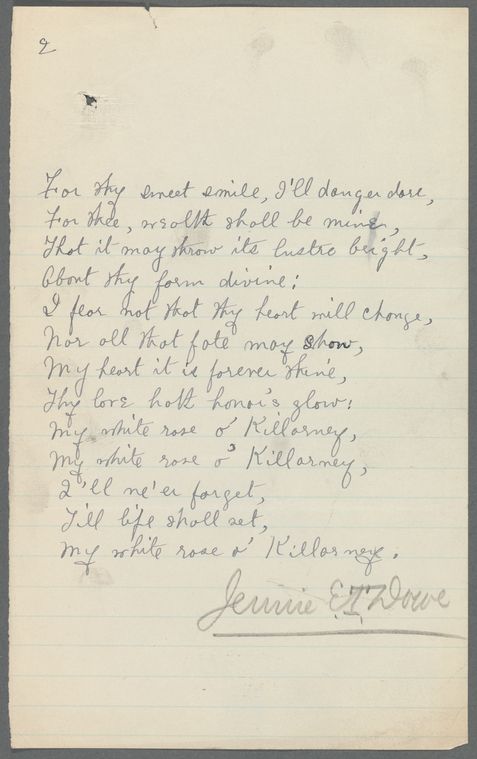 2
For thy sweet smile, I'll danger dare,
For thee, wealth shall be mine,
That it may throw its lustre bright,
About thy form divine;
I fear not that thy heart will change,
Nor all that fate may show,
My heart it is forever thine,
Thy love hath honor's glow!
My white rose o' Killarney,
My white rose o' Killarney,
I'll ne'er forget,
Till life shall set,
My white rose o' Killarney.
Jennie E. T. Dowe